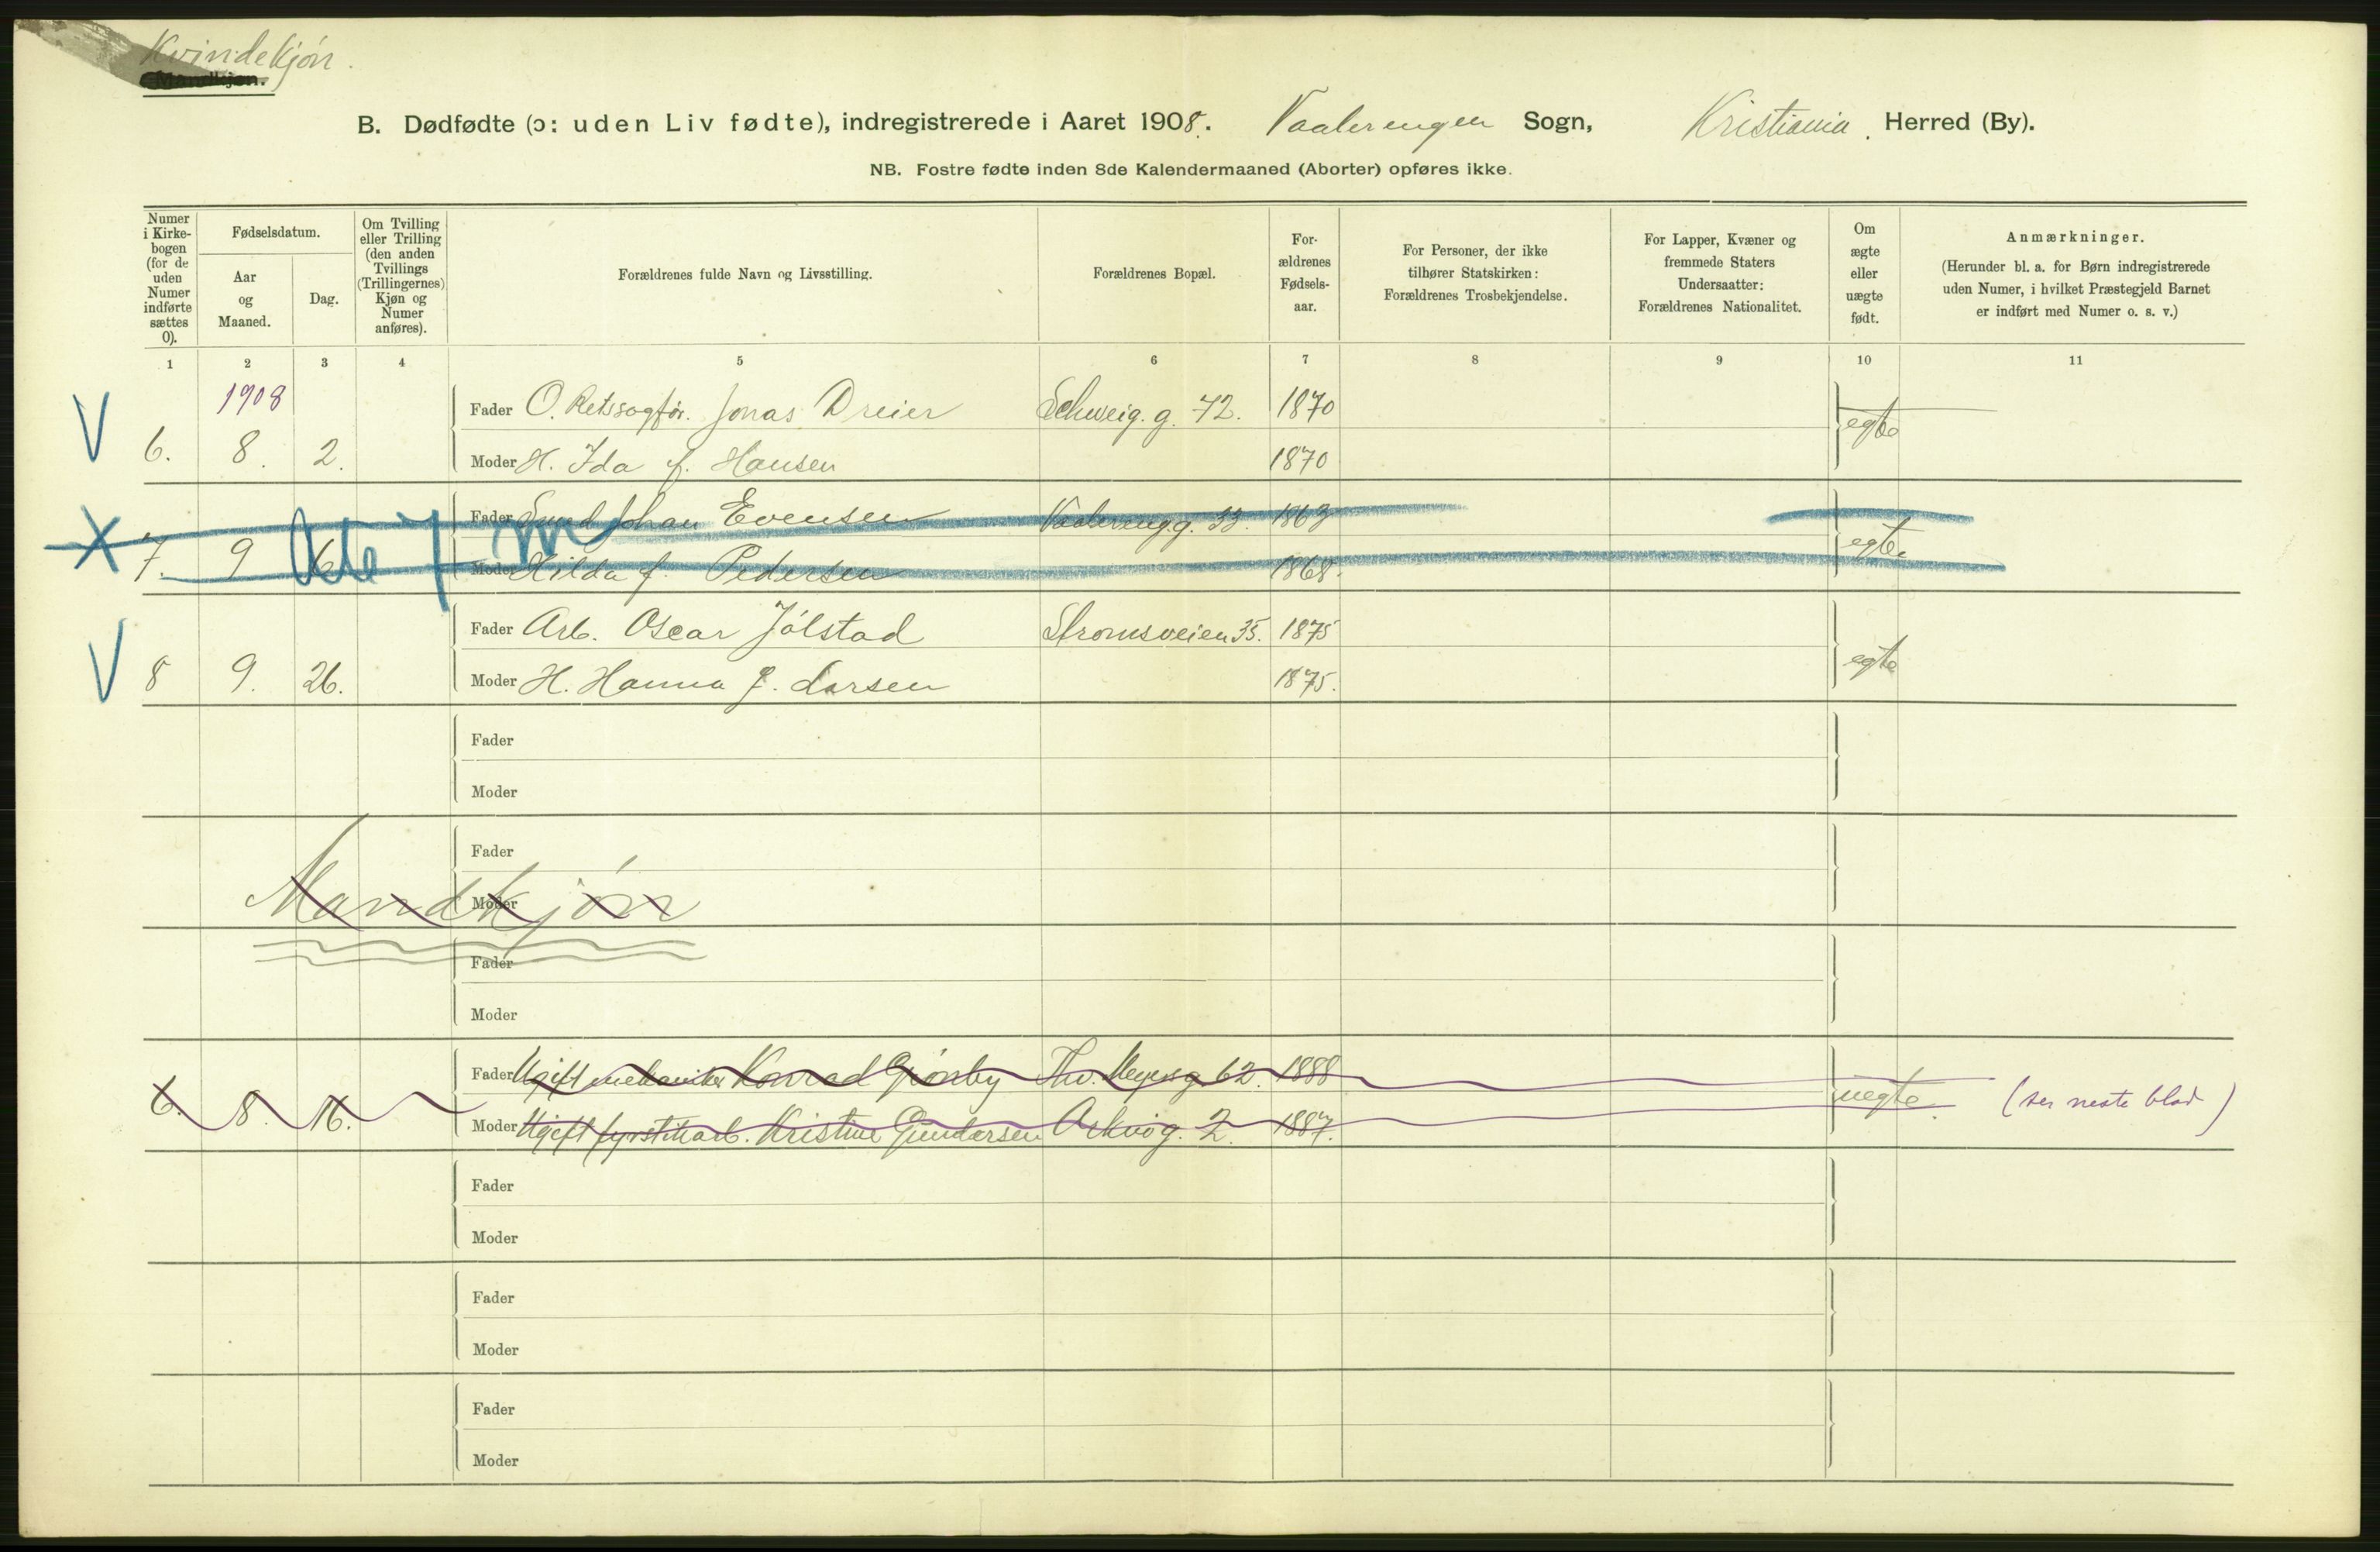 Kvindekjön.
Mandkjøn.
B. Dødfødte (ɔ: uden Liv fødte), indregistrerede i Aaret 1908. Vaalerengen Sogn, Kristiania. Herred (By).
NB. Fostre fødte inden 8de Kalendermaaned (Aborter) opføres ikke.
Numer i Kirke-bogen (for de uden Numer indførte sættes 0).
Fødselsdatum.
Aar og Maaned.
Dag.
Om Tvilling eller Trilling (den anden Tvillings (Trillingernes) Kjøn og Numer anføres).
Forældrenes fulde Navn og Livsstilling.
Forældrenes Bopæl.
For-ældrenes Fødsels-aar.
For Personer, der ikke tilhører Statskirken: Forældrenes Trosbekjendelse.
For Lapper, Kvæner og fremmede Staters Undersaatter: Forældrenes Nationalitet.
Om ægte eller uægte født.
Anmærkninger.
(Herunder bl. a. for Børn indregistrerede uden Numer, i hvilket Præstegjeld Barnet er indført med Numer o. s. v.)
1 2 3 4 5 6 7 8 9 10 11
V 1908 Fader O. Retssagfør. Jonas Dreier Schweig. g. 72. 1870 egte
6. 8. 2. Moder H. Ida f. Hansen 1870
X Fader Johan Evensen Vaalereng.g. 33. 1863 egte
7. 9 Moder Hilda f. Pedersen 1868.
V Fader Arb. Oscar Jölstad Stromsveien 35. 1875 egte
8 9. 26. Moder H. Hanna f. Larsen 1875.
Fader
Moder
Fader
Mandkjön
Moder
Fader
Moder
Fader Ugift mekaniker Konrad Grönby Thv. Meyersg 62. 1888
6. 8. 16. uegte. (ser neste blad)
Moder Ugift fyrstikarb. Kristine Gundersen Askvig. 2. 1887.
Fader
Moder
Fader
Moder
Fader
Moder